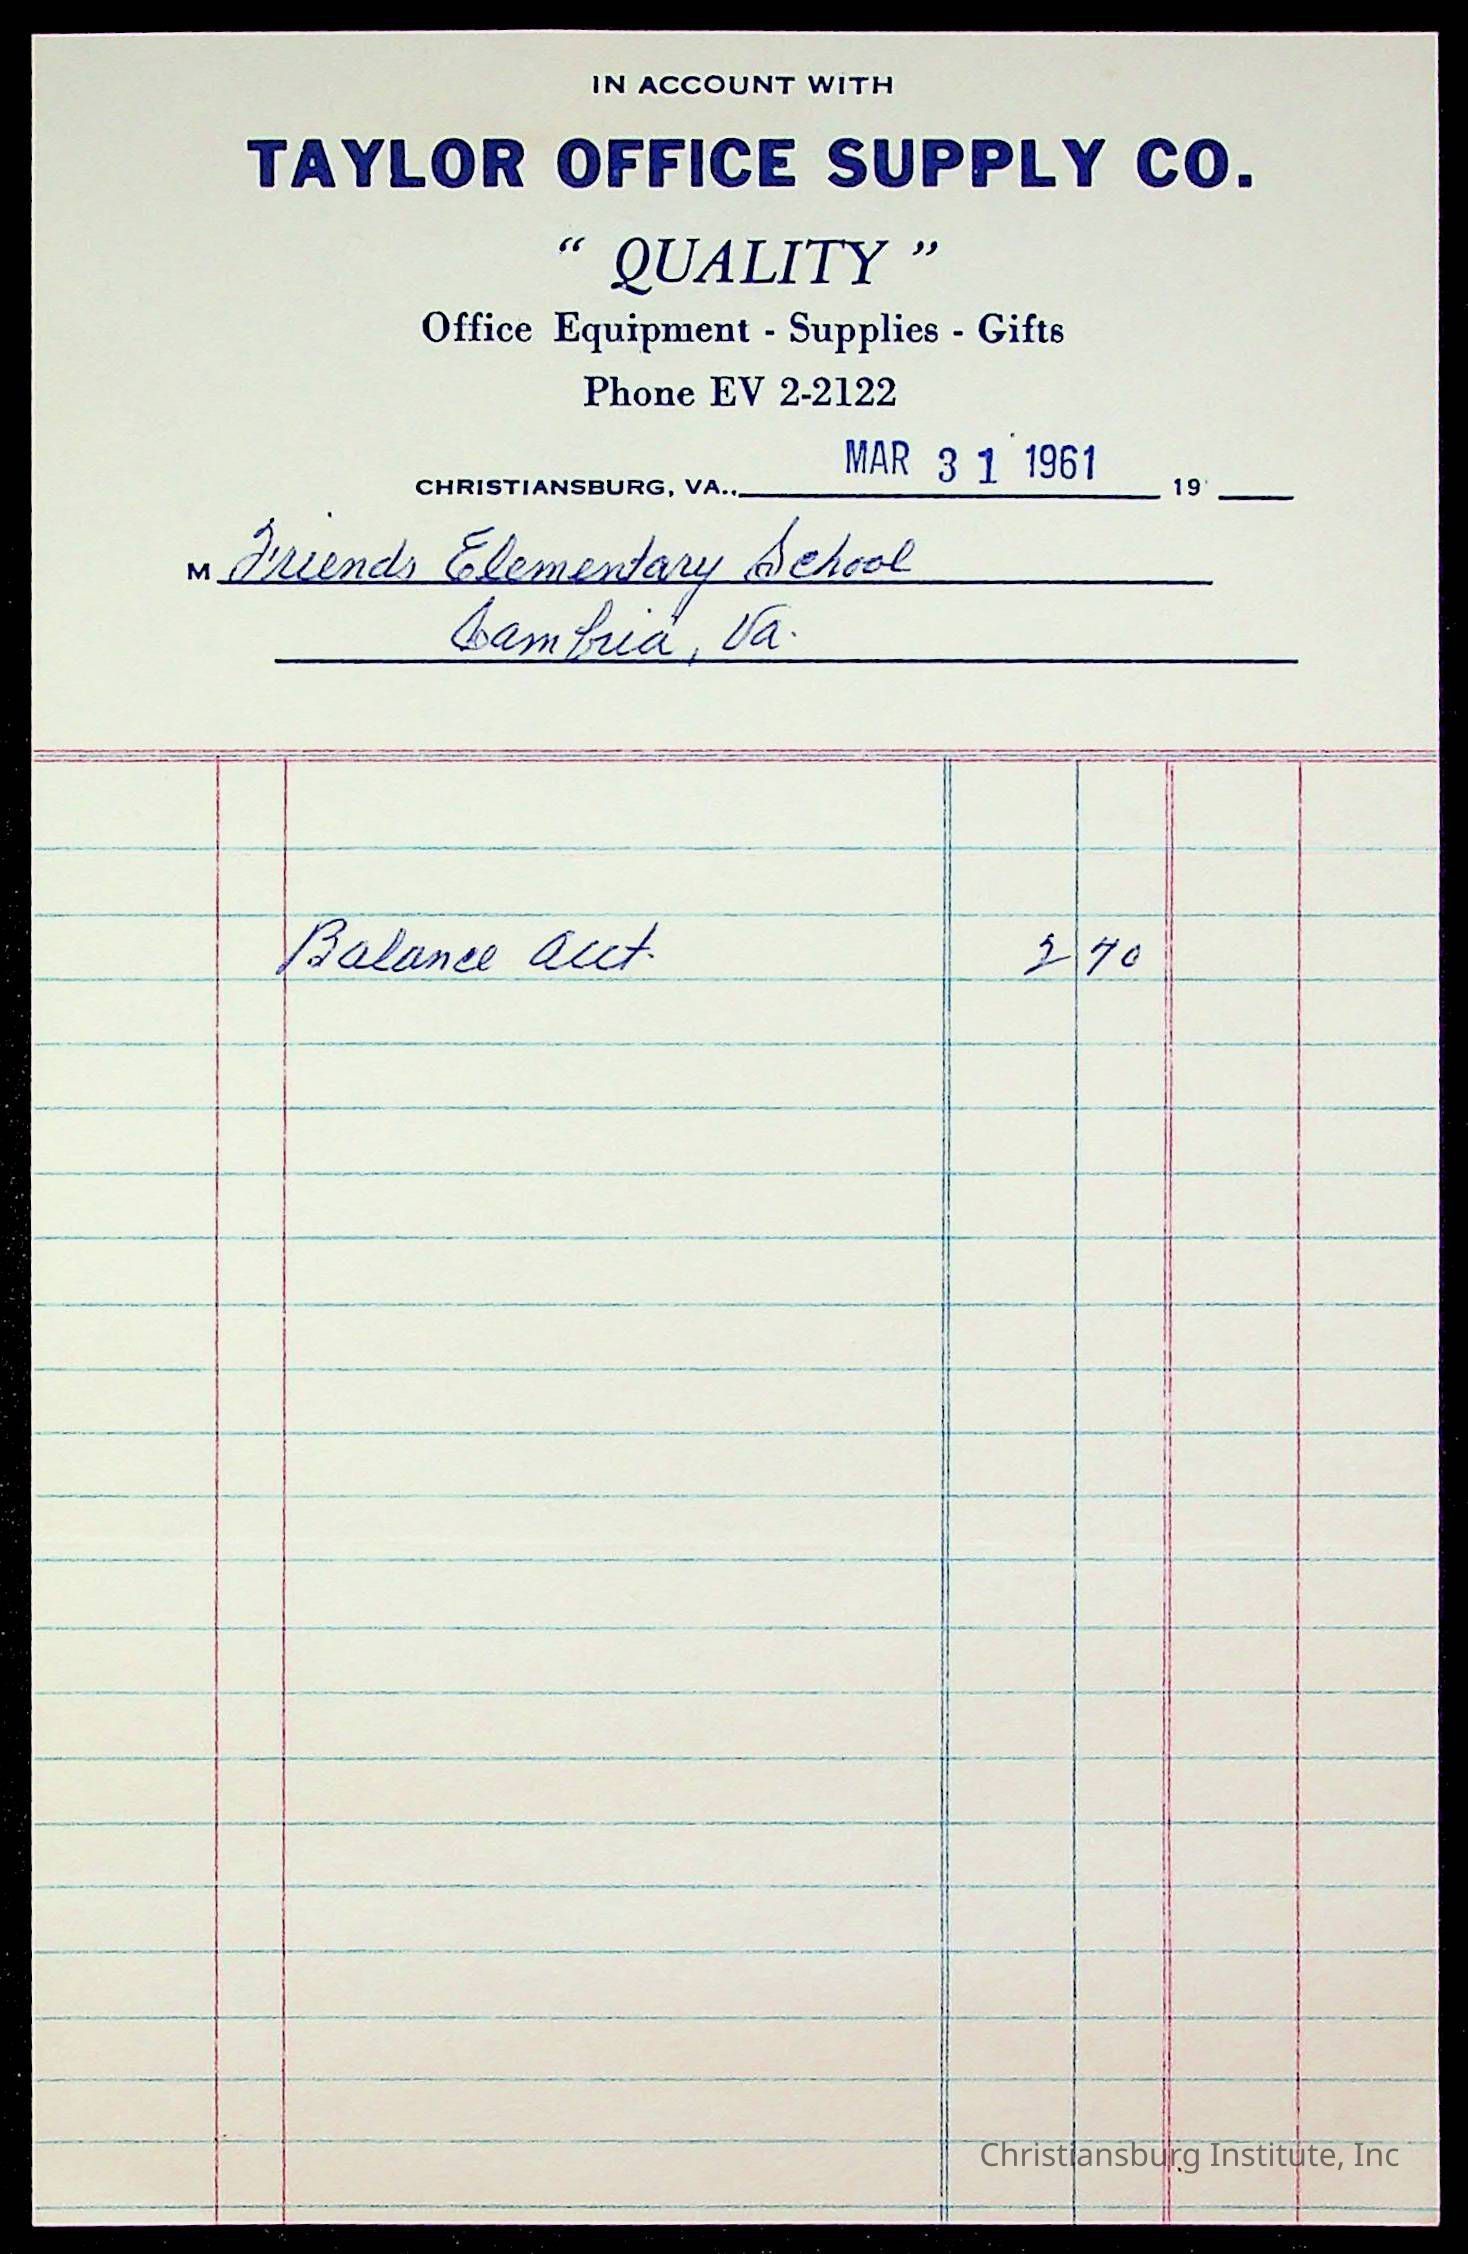 IN ACCOUNT WITH
TAYLOR OFFICE SUPPLY CO.
" QUALITY "
Office Equipment - Supplies - Gifts
Phone EV 2-2122
CHRISTIANSBURG, VA., MAR 31 1961 19
M Friends Elementary School
Cambria, Va.
Balance acct. 2 70
Christiansburg Institute, Inc